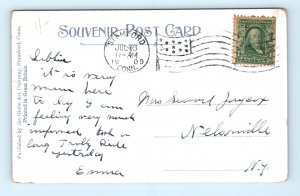 SOUVENIR POST CARD
STAMFORD
JUL 13
11-AM
1909
CONN.
Published by the Globe Art Company, Stamford, Conn.
Printed in Great Britain
it is very
warm here
to day I am
feeling very much
improved took a
long Trolly Ride
yesterday
Emma
Mrs Seward
Nelsonville
N.Y.